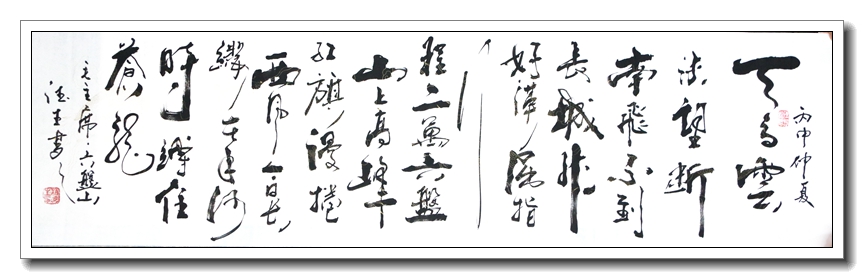 丙申仲夏
天高雲
淡望断
南飛不到
長城非
好漢屈指
行
程二萬六盤
山上高峰
红旗漫捲
西风今日長
缨在手何
時縛住
蒼龍
毛主席六盤山
書